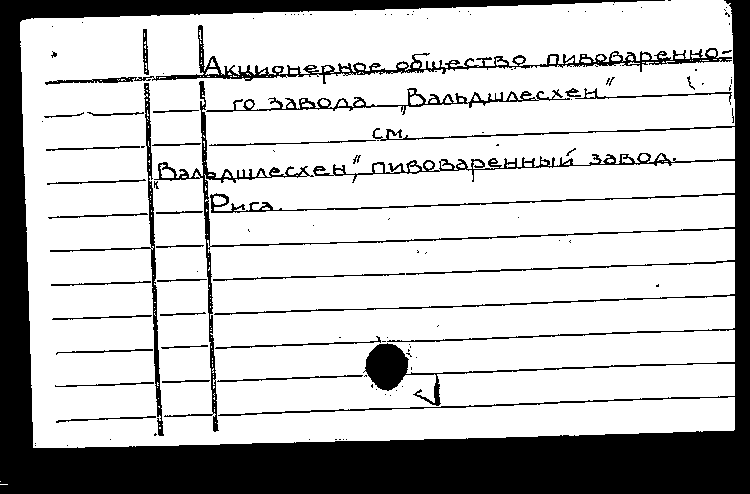 Акционерное общество пивоваренно-
го завода „Вальдшлесхен"
см.
„Вальдшлесхен", пивоваренный завод.
Рига.